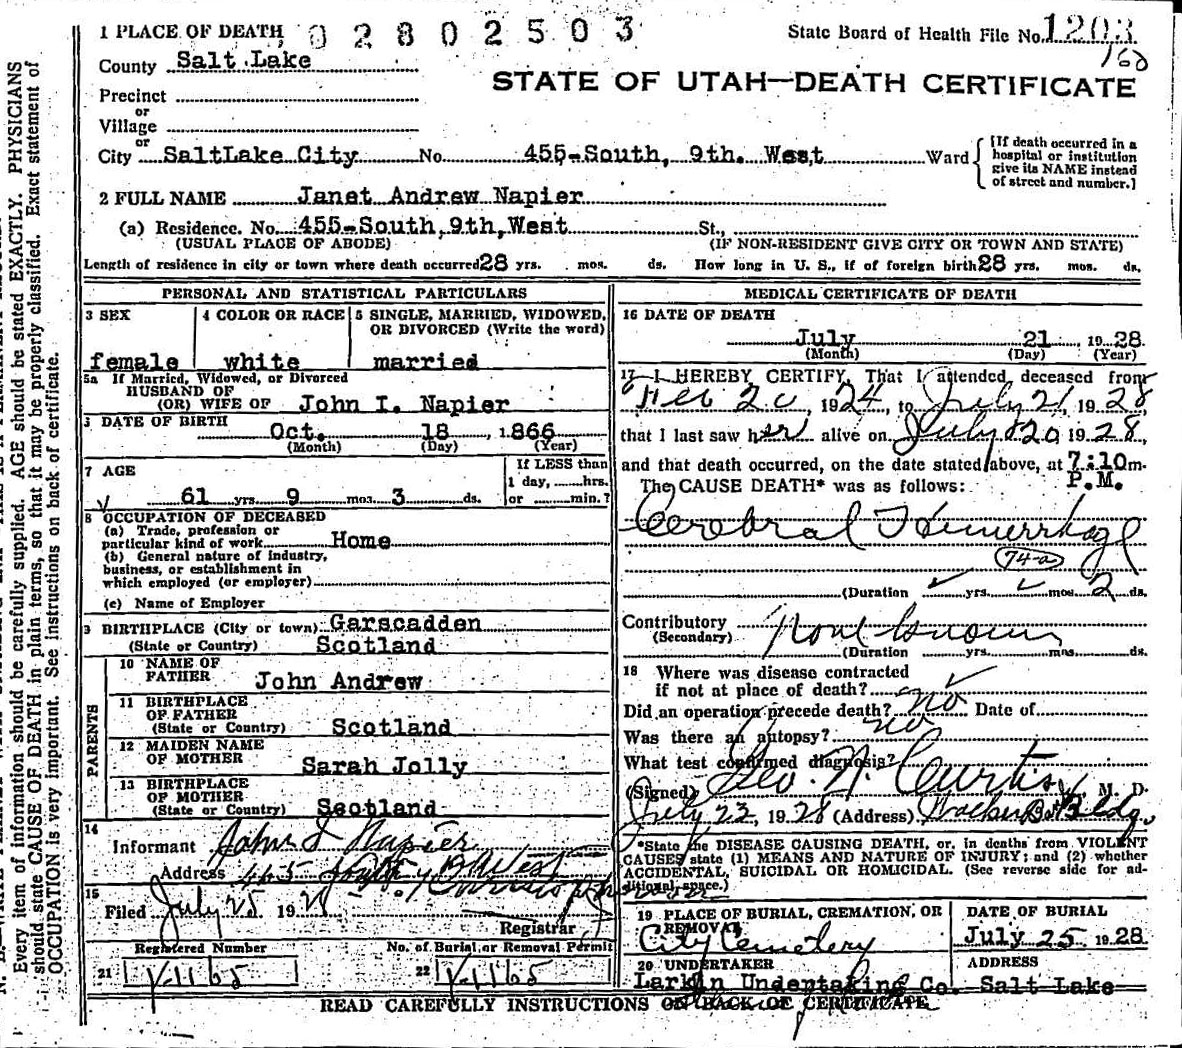 1 PLACE OF DEATH
02802503
State Board of Health File No. 1203
160
County Salt Lake
STATE OF UTAH—DEATH CERTIFICATE
Precinct
or
Village
or
City SaltLake City No. 455-South, 9th. West, Ward
[If death occurred in a hospital or institution give its NAME instead of street and number.]
2 FULL NAME Janet Andrew Napier
(a) Residence. No. 455-South, 9th, West St.,
(USUAL PLACE OF ABODE) (IF NON-RESIDENT GIVE CITY OR TOWN AND STATE)
Length of residence in city or town where death occurred 28 yrs. mos. ds. How long in U. S., if of foreign birth 28 yrs. mos. ds.
PERSONAL AND STATISTICAL PARTICULARS
3 SEX
female
4 COLOR OR RACE
white
5 SINGLE, MARRIED, WIDOWED, OR DIVORCED (Write the word)
married
5a If Married, Widowed, or Divorced
HUSBAND OF
(OR) WIFE OF John I. Napier
DATE OF BIRTH Oct. 18, 1866
(Month) (Day) (Year)
7 AGE
61 yrs. 9 mos. 3 ds.
If LESS than
1 day, hrs.
or min.?
8 OCCUPATION OF DECEASED
(a) Trade, profession or
particular kind of work Home
(b) General nature of industry,
business, or establishment in
which employed (or employer)
(c) Name of Employer
9 BIRTHPLACE (City or town) Garscadden
(State or Country) Scotland
PARENTS
10 NAME OF
FATHER John Andrew
11 BIRTHPLACE
OF FATHER
(State or Country) Scotland
12 MAIDEN NAME
OF MOTHER Sarah Jolly
13 BIRTHPLACE
OF MOTHER
(State or Country) Scotland
14
Informant John I Napier
Address 465 South 9 West
15
Filed July 25 1928
Registrar
Registered Number
21 V-1165
No. of Burial or Removal Permit
22 V-1165
MEDICAL CERTIFICATE OF DEATH
16 DATE OF DEATH
July 21, 1928.
(Month) (Day) (Year)
17 I HEREBY CERTIFY, That I attended deceased from
Feb 20, 1924, to July 21, 1928,
that I last saw her alive on July 20 1928,
and that death occurred, on the date stated above, at 7:10 m.
P.M.
The CAUSE DEATH* was as follows:
Cerebral Hemorrhage
74-a
(Duration yrs. mos. 2 ds.
Contributory None known
(Secondary)
(Duration yrs. mos. ds.
18 Where was disease contracted
if not at place of death?
Did an operation precede death? no Date of
Was there an autopsy? no
What test confirmed diagnosis?
(Signed) Geo. N. Curtis, M. D.
July 23, 1928 (Address) Bldg.
*State the DISEASE CAUSING DEATH, or, in deaths from VIOLENT
CAUSES state (1) MEANS AND NATURE OF INJURY; and (2) whether
ACCIDENTAL, SUICIDAL OR HOMICIDAL. (See reverse side for ad-
ditional space.)
19 PLACE OF BURIAL, CREMATION, OR
REMOVAL
City Cemetery
DATE OF BURIAL
July 25 1928
20 UNDERTAKER
Larkin Undertaking Co.
ADDRESS
Salt Lake
READ CAREFULLY INSTRUCTIONS ON BACK OF CERTIFICATE
Every item of information should be carefully supplied. AGE should be stated EXACTLY. PHYSICIANS
should state CAUSE OF DEATH in plain terms, so that it may be properly classified. Exact statement of
OCCUPATION is very important. See instructions on back of certificate.